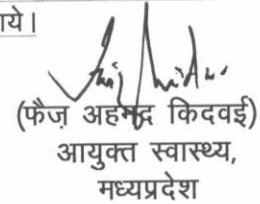 ाये।
(फैज़ अहमद किदवई)
आयुक्त स्वास्थ्य,
मध्यप्रदेश